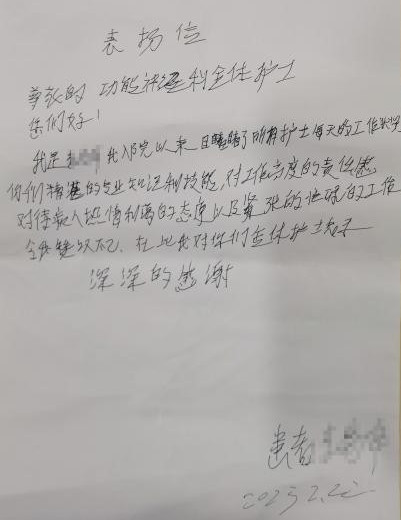 表扬信
尊敬的 功能神经科全体护士
您们好！
我是 我入院以来 目睹了所有护士每天的工作状况
你们精湛的专业知识和技能，对工作高度的责任感
对待病人热情和蔼的态度以及紧张的忙碌的工作
令我赞叹不已，在此我对你们全体护士表示
深深的感谢
患者
2023.2.22